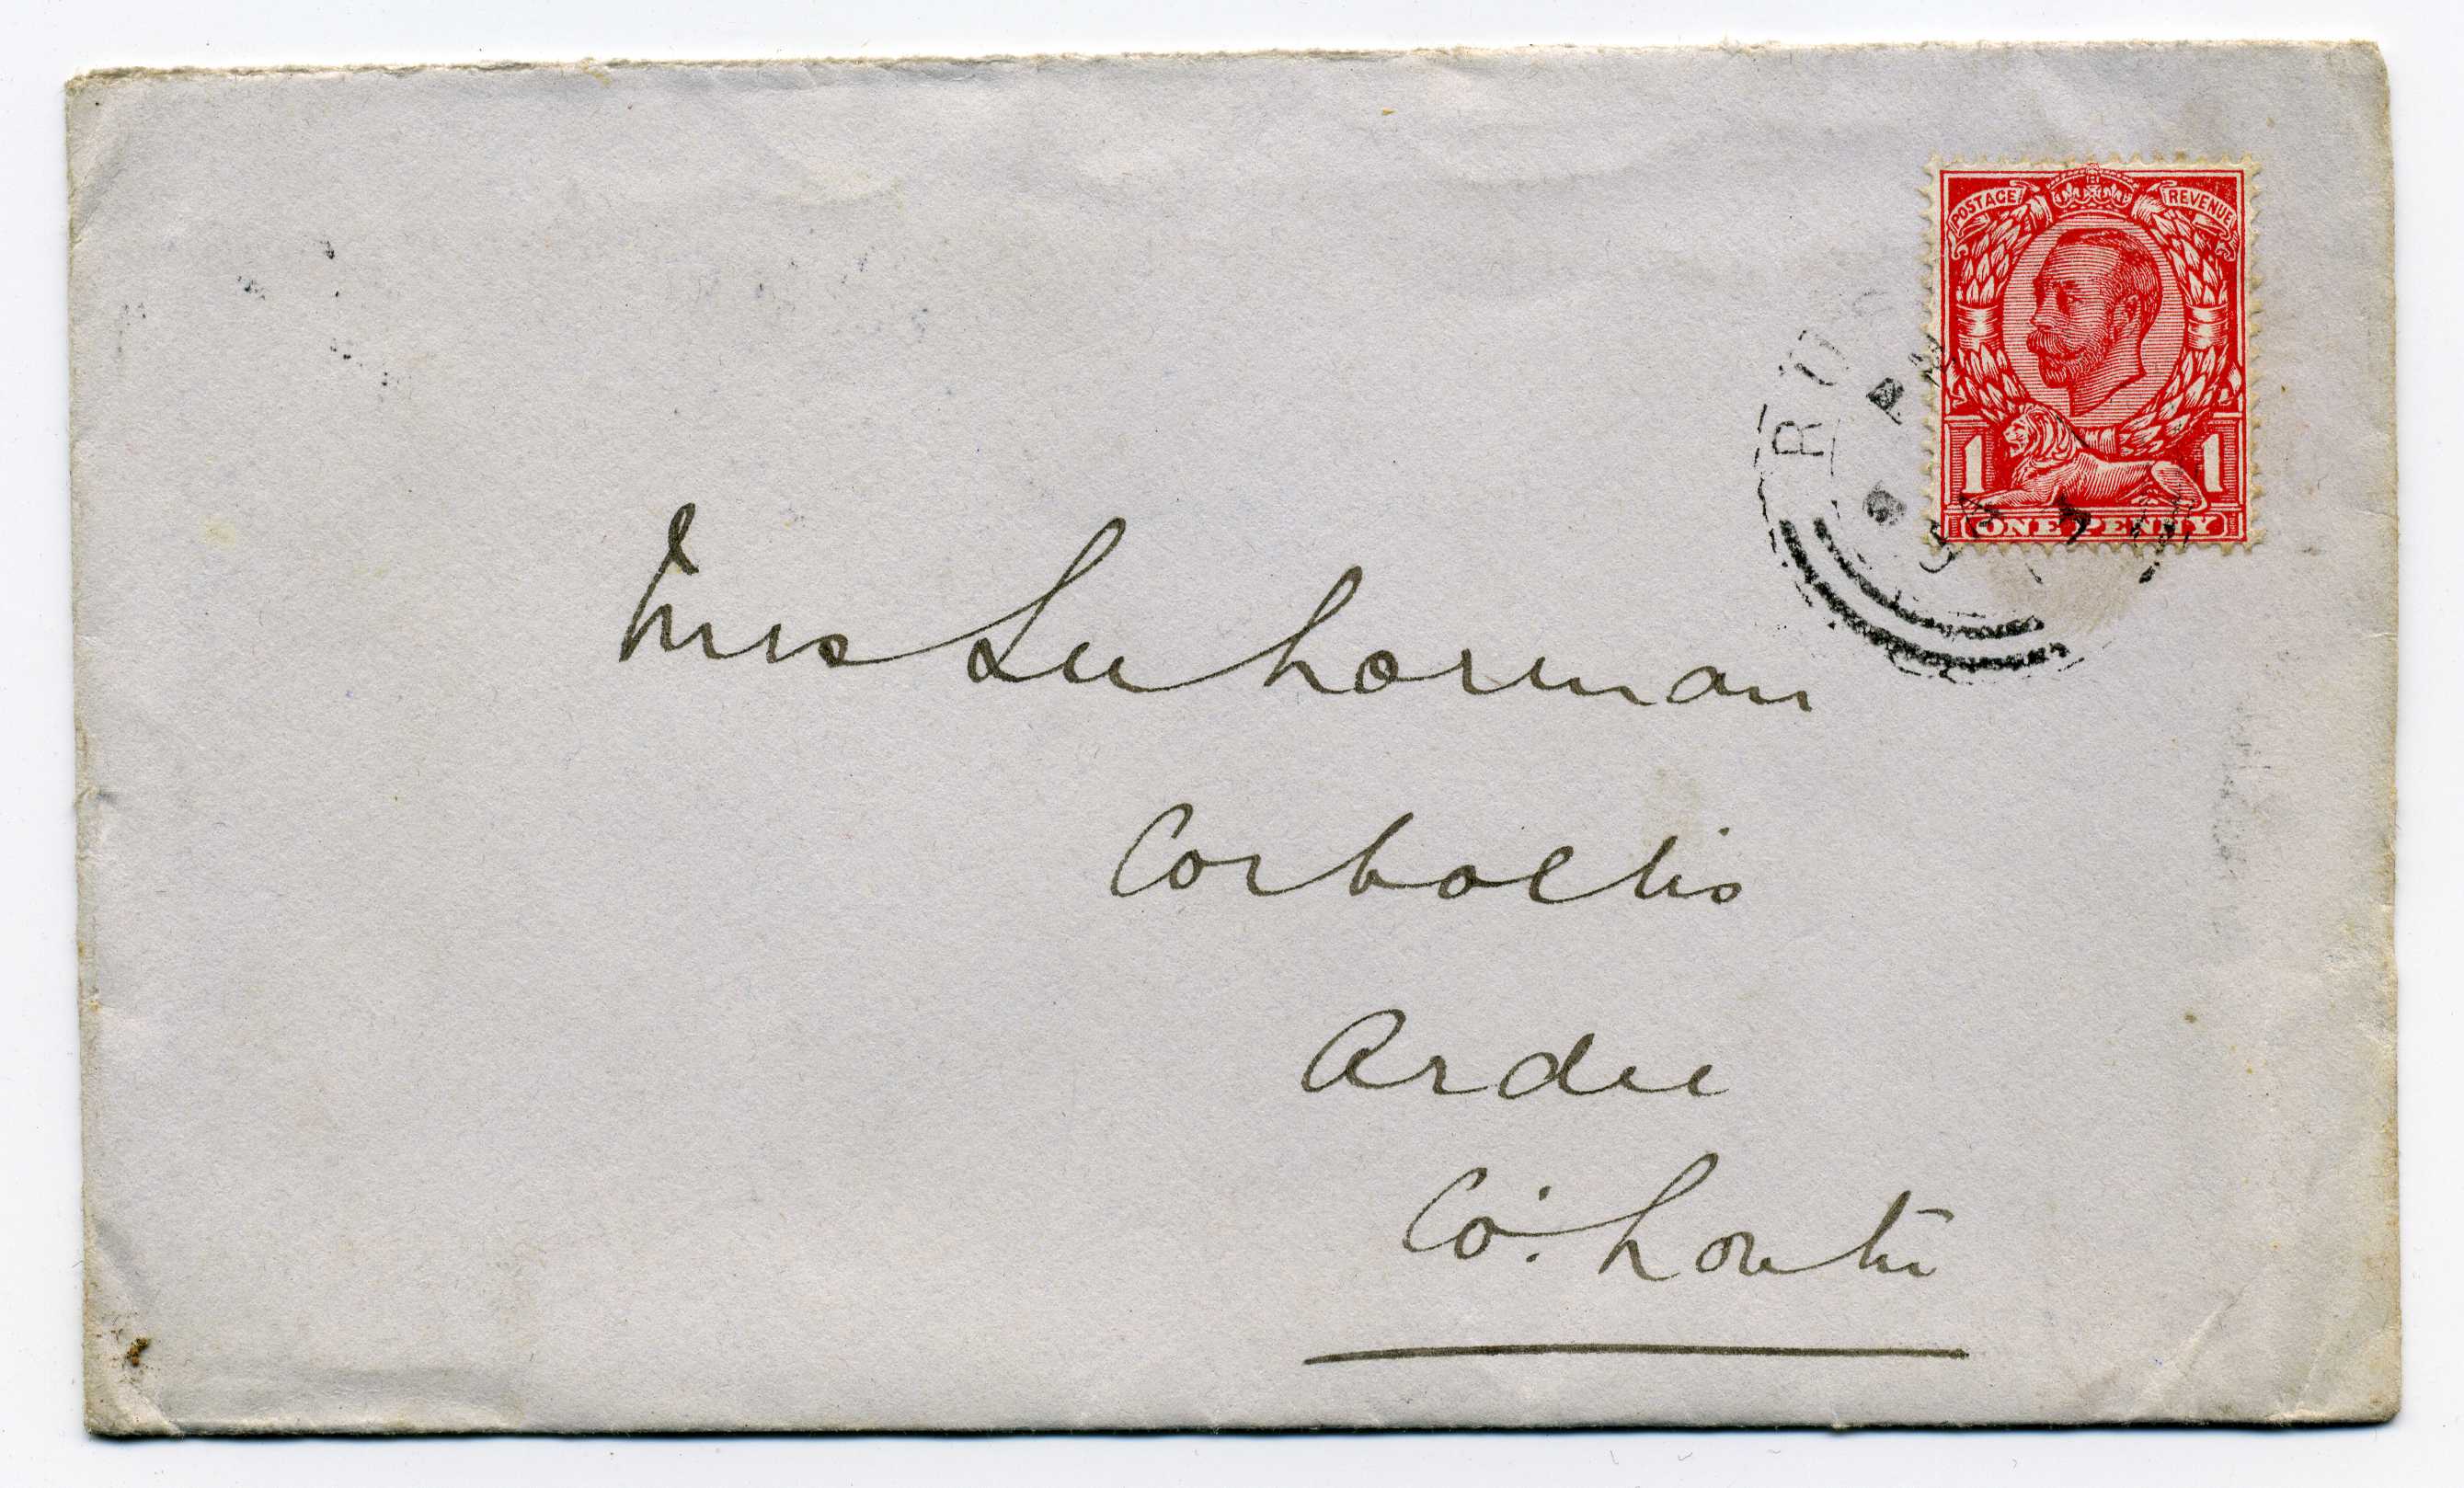 POSTAGE REVENUE
1 1
ONE PENNY
Mrs Lee Norman
Corbollis
Ardee
Co. Louth